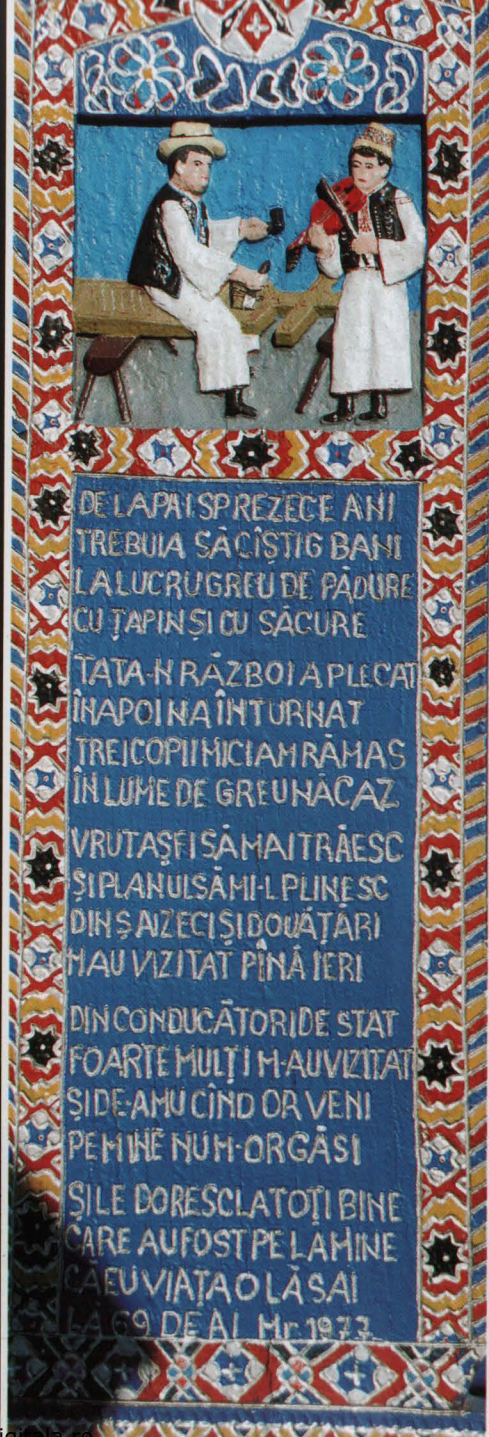 DE LA PAISPREZECE ANI
TREBUIA SĂ CÎȘTIG BANI
LA LUCRU GREU DE PĂDURE
CU ȚAPIN ȘI CU SĂCURE
TATA-N RĂZBOI A PLECAT
ÎNAPOI NA ÎNTURNAT
TREI COPII MICI AM RĂMAS
ÎN LUME DE GREU NĂCAZ
VRUT AȘ FI SĂ MAI TRĂESC
ȘI PLANUL SĂ MI-L PLINESC
DIN ȘAIZECI ȘI DOUĂ ȚĂRI
MAU VIZITAT PÎNĂ IERI
DIN CONDUCĂTORI DE STAT
FOARTE MULȚI M-AU VIZITAT
ȘI DE-AMU CÎND OR VENI
PE MINE NU M-OR GĂSI
ȘI LE DORESC LA TOȚI BINE
CARE AU FOST PE LA MINE
CĂ EU VIAȚA O LĂSAI
LA 69 DE AI Mr 1977